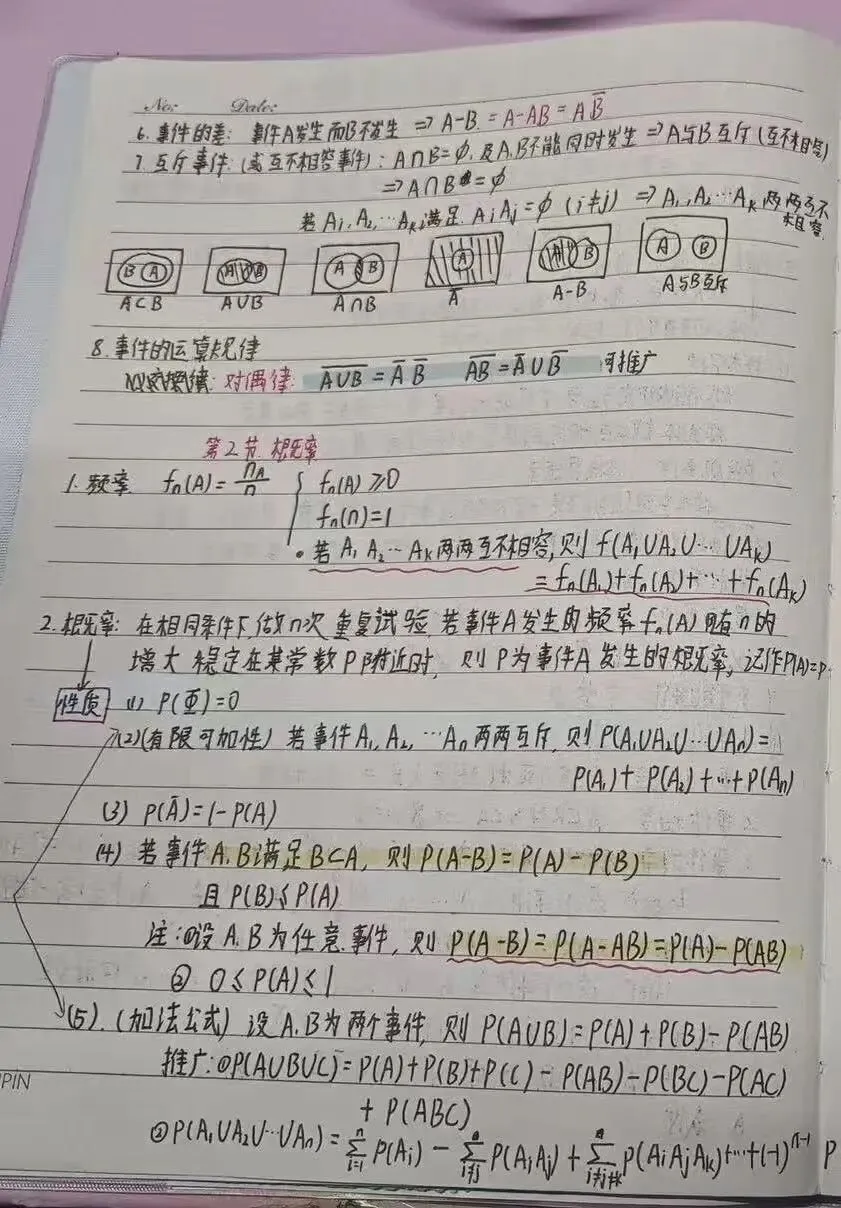 No: Date:
6. 事件的差: 事件A发生而B不发生 ⇒ A-B = A-AB = AB̅
7. 互斥事件(或互不相容事件): A∩B=∅, 及A,B不能同时发生 ⇒ A与B互斥(互不相容)
⇒ A∩B=∅
若A₁,A₂…Aₖ,满足 AᵢAⱼ=∅ (i≠j) ⇒ A₁,A₂…Aₖ两两互不相容
B A A B A B A A B A B
A⊂B A∪B A∩B A̅ A-B A与B互斥
8. 事件的运算规律
律: 对偶律: \overline{A∪B} = A̅ B̅ \overline{AB} = A̅∪B̅ 可推广
第2节 概率
1. 频率 fn(A)=nA/n { fn(A)≥0
fn(Ω)=1
• 若A₁A₂…Aₖ两两互不相容,则f(A₁∪A₂∪…∪Aₖ)
=fn(A₁)+fn(A₂)+…+fn(Aₖ)
2. 概率: 在相同条件下做n次重复试验,若事件A发生的频率fn(A)随着n的
增大稳定在某常数P附近时, 则P为事件A发生的概率, 记作P(A)=P
性质 (1) P(Φ)=0
(2)(有限可加性) 若事件A₁,A₂,…Aₙ两两互斥, 则P(A₁∪A₂∪…∪Aₙ)=
P(A₁)+P(A₂)+…+P(Aₙ)
(3) P(A̅)=1-P(A)
(4) 若事件A,B满足B⊂A, 则P(A-B)=P(A)-P(B)
且P(B)≤P(A)
注:①设A,B为任意事件, 则P(A-B)=P(A-AB)=P(A)-P(AB)
② 0≤P(A)≤1
(5). (加法公式) 设A,B为两个事件, 则P(A∪B)=P(A)+P(B)-P(AB)
推广:①P(A∪B∪C)=P(A)+P(B)+P(C)-P(AB)-P(BC)-P(AC)
PIN
+P(ABC)
②P(A₁∪A₂∪…∪Aₙ)=∑ⁿᵢ₌₁P(Aᵢ)-∑ᵢ≠ⱼP(AᵢAⱼ)+∑ᵢ≠ⱼ≠ₖP(AᵢAⱼAₖ)+…+(-1)ⁿ⁻¹ P